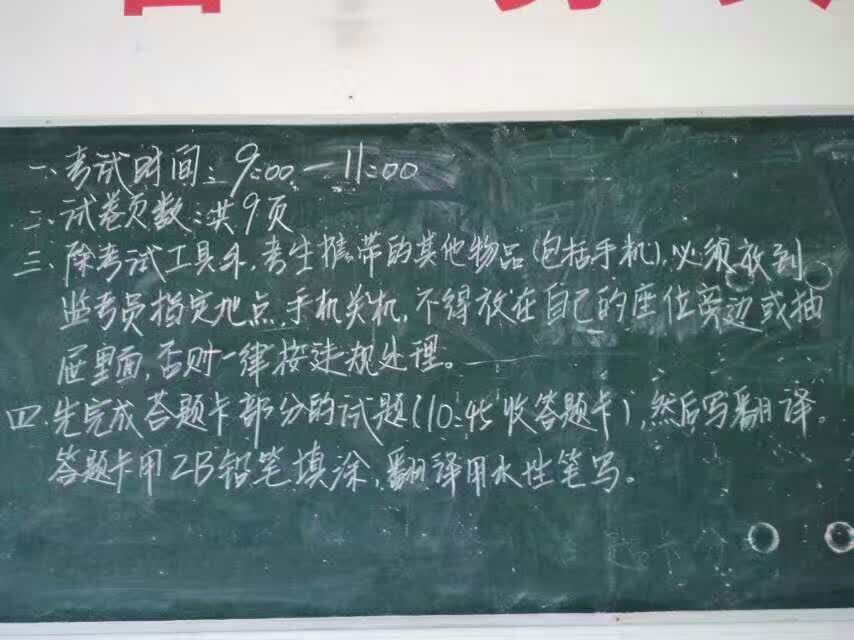 一、考试时间：9:00—11:00
二、试卷页数：共9页
三、除考试工具外，考生携带的其他物品(包括手机)，必须放到
监考员指定地点，手机关机，不得放在自己的座位旁边或抽
屉里面，否则一律按违规处理。
四、先完成答题卡部分的试题(10:45收答题卡)，然后写翻译。
答题卡用2B铅笔填涂，翻译用水性笔写。